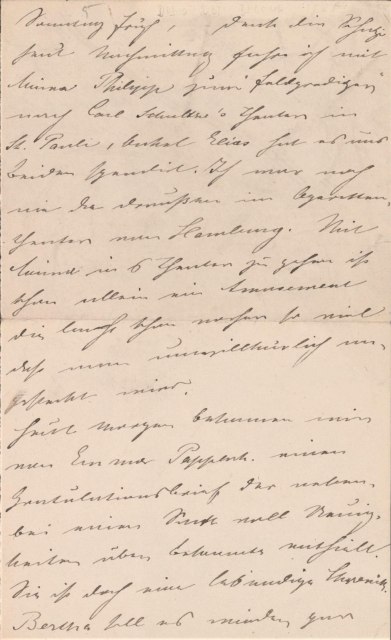 Sonntag früh, denk dir Schatz
heut Nachmittag fahre ich mit
Minna Philipp zum Feldprediger
nach Carl Schultze's Theater in
St. Pauli, Onkel Elias hat es uns
beiden spendirt. Ich war noch
nie da draußen im Operetten
theater von Hamburg. Mit
Minna in's Theater zu gehen ist
schon allein ein Amusement
die lacht schon vorher so viel
daß man unwillkürlich an-
gesteckt wird.
Heute Morgen bekamen wir
von Emma einen
Gratulationsbrief der neben-
bei einen Sack voll Neuig-
keiten über Bekannte enthielt.
Sie ist doch eine lebendige Chronik.
Bertha soll es wieder gut